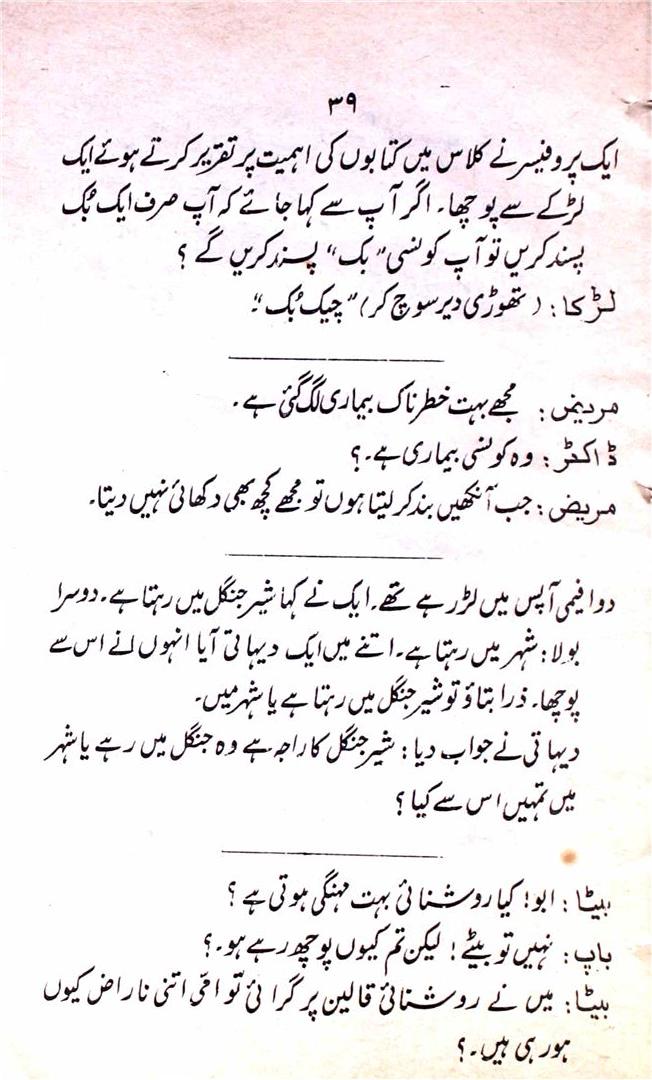 ۳۹
ایک پروفیسر نے کلاس میں کتابوں کی اہمیت پر تقریر کرتے ہوئے ایک
لڑکے سے پوچھا۔ اگر آپ سے کہا جائے کہ آپ صرف ایک بُک
پسند کریں تو آپ کونسی "بک" پسند کریں گے ؟
لڑکا: (تھوڑی دیر سوچ کر) "چیک بُک"۔
مریض: مجھے بہت خطرناک بیماری لگ گئی ہے۔
ڈاکٹر: وہ کونسی بیماری ہے۔؟
مریض: جب آنکھیں بند کر لیتا ہوں تو مجھے کچھ بھی دکھائی نہیں دیتا۔
دو افیمی آپس میں لڑ رہے تھے۔ ایک نے کہا شیر جنگل میں رہتا ہے۔ دوسرا
بولا: شہر میں رہتا ہے۔ اتنے میں ایک دیہاتی آیا انہوں نے اس سے
پوچھا۔ ذرا بتاؤ تو شیر جنگل میں رہتا ہے یا شہر میں۔
دیہاتی نے جواب دیا: شیر جنگل کا راجہ ہے وہ جنگل میں رہے یا شہر
میں تمہیں اس سے کیا ؟
بیٹا: ابو! کیا روشنائی بہت مہنگی ہوتی ہے ؟
باپ: نہیں تو بیٹے! لیکن تم کیوں پوچھ رہے ہو۔؟
بیٹا: میں نے روشنائی قالین پر گرائی تو امّی اتنی ناراض کیوں
ہو رہی ہیں۔؟